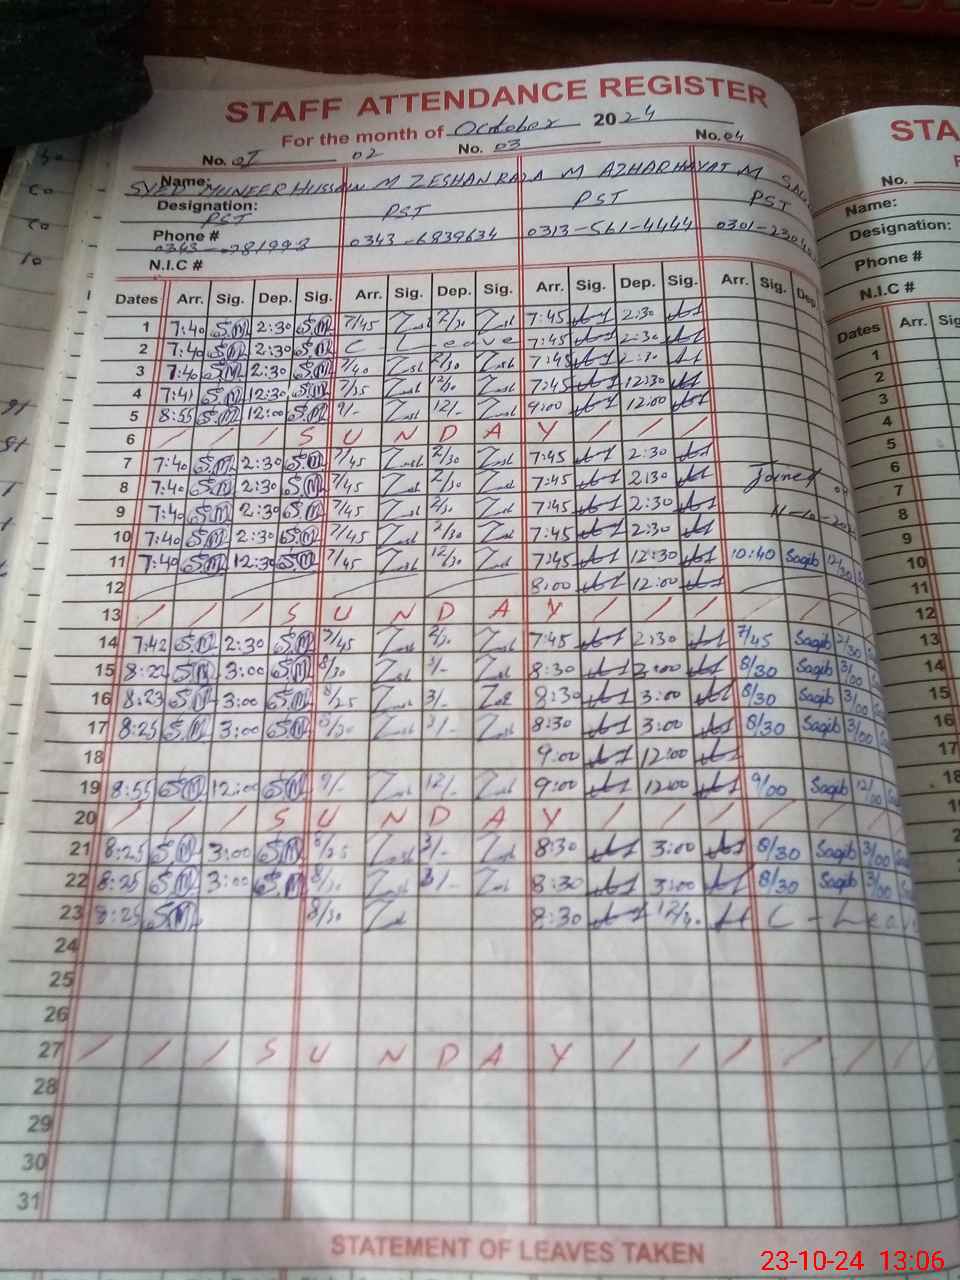 STAFF ATTENDANCE REGISTER
For the month of October 2024
No. 01 02 No. 03 No. 04
Name: SYED MUNEER HUSSAIN M ZESHAN RAZA M AZHAR HAYAT M
Designation: PST PST PST PST
Phone # 0343-6839634 0313-561-4444
N.I.C #
Dates Arr. Sig. Dep. Sig. Arr. Sig. Dep. Sig. Arr. Sig. Dep. Sig. Arr. Sig. Dep
1 7:40 SM 2:30 SM 7/45 2/30 7:45 2:30
2 7:40 SM 2:30 SM C Leave 7:45 2:30
3 7:40 SM 2:30 SM 7/40 2/30 7:45 2:30
4 7:41 SM 12:30 SM 7/35 12/30 7:45 12:30
5 8:55 SM 12:00 SM 9/- 12/- 9:00 12:00
6 / / / S U N D A Y / / /
7 7:40 SM 2:30 SM 7/45 2/30 7:45 2:30
8 7:40 SM 2:30 SM 7/45 2/30 7:45 2:30 Joined
9 7:40 SM 2:30 SM 7/45 2/30 7:45 2:30
10 7:40 SM 2:30 SM 7/45 2/30 7:45 2:30
11 7:40 SM 12:30 SM 7/45 12/30 7:45 12:30 10:40 Saqib 12/30
12 8:00 12:00
13 / / / S U N D A Y / / /
14 7:42 SM 2:30 SM 7/45 2/30 7:45 2:30 7/45 Saqib 2/30
15 8:22 SM 3:00 SM 8/30 3/- 8:30 3:00 8/30 Saqib 3/00
16 8:23 SM 3:00 SM 8/25 3/- 8:30 3:00 8/30 Saqib 3/00
17 8:25 SM 3:00 SM 8/30 3/- 8:30 3:00 8/30 Saqib 3/00
18 9:00 12:00
19 8:55 SM 12:00 SM 9/- 12/- 9:00 12:00 9/00 Saqib 12/00
20 / / / S U N D A Y / / /
21 8:25 SM 3:00 SM 8/25 3/- 8:30 3:00 8/30 Saqib 3/00
22 8:25 SM 3:00 SM 8/30 3/- 8:30 3:00 8/30 Saqib 3/00
23 8:25 SM 8/30 8:30 C - Leav
24
25
26
27 / / / S U N D A Y / / /
28
29
30
31
STATEMENT OF LEAVES TAKEN
STA
No.
Name:
Designation:
Phone #
N.I.C #
Dates Arr. Sig
1
2
3
4
5
6
7
8
9
10
11
12
13
14
15
16
17
18
23-10-24 13:06